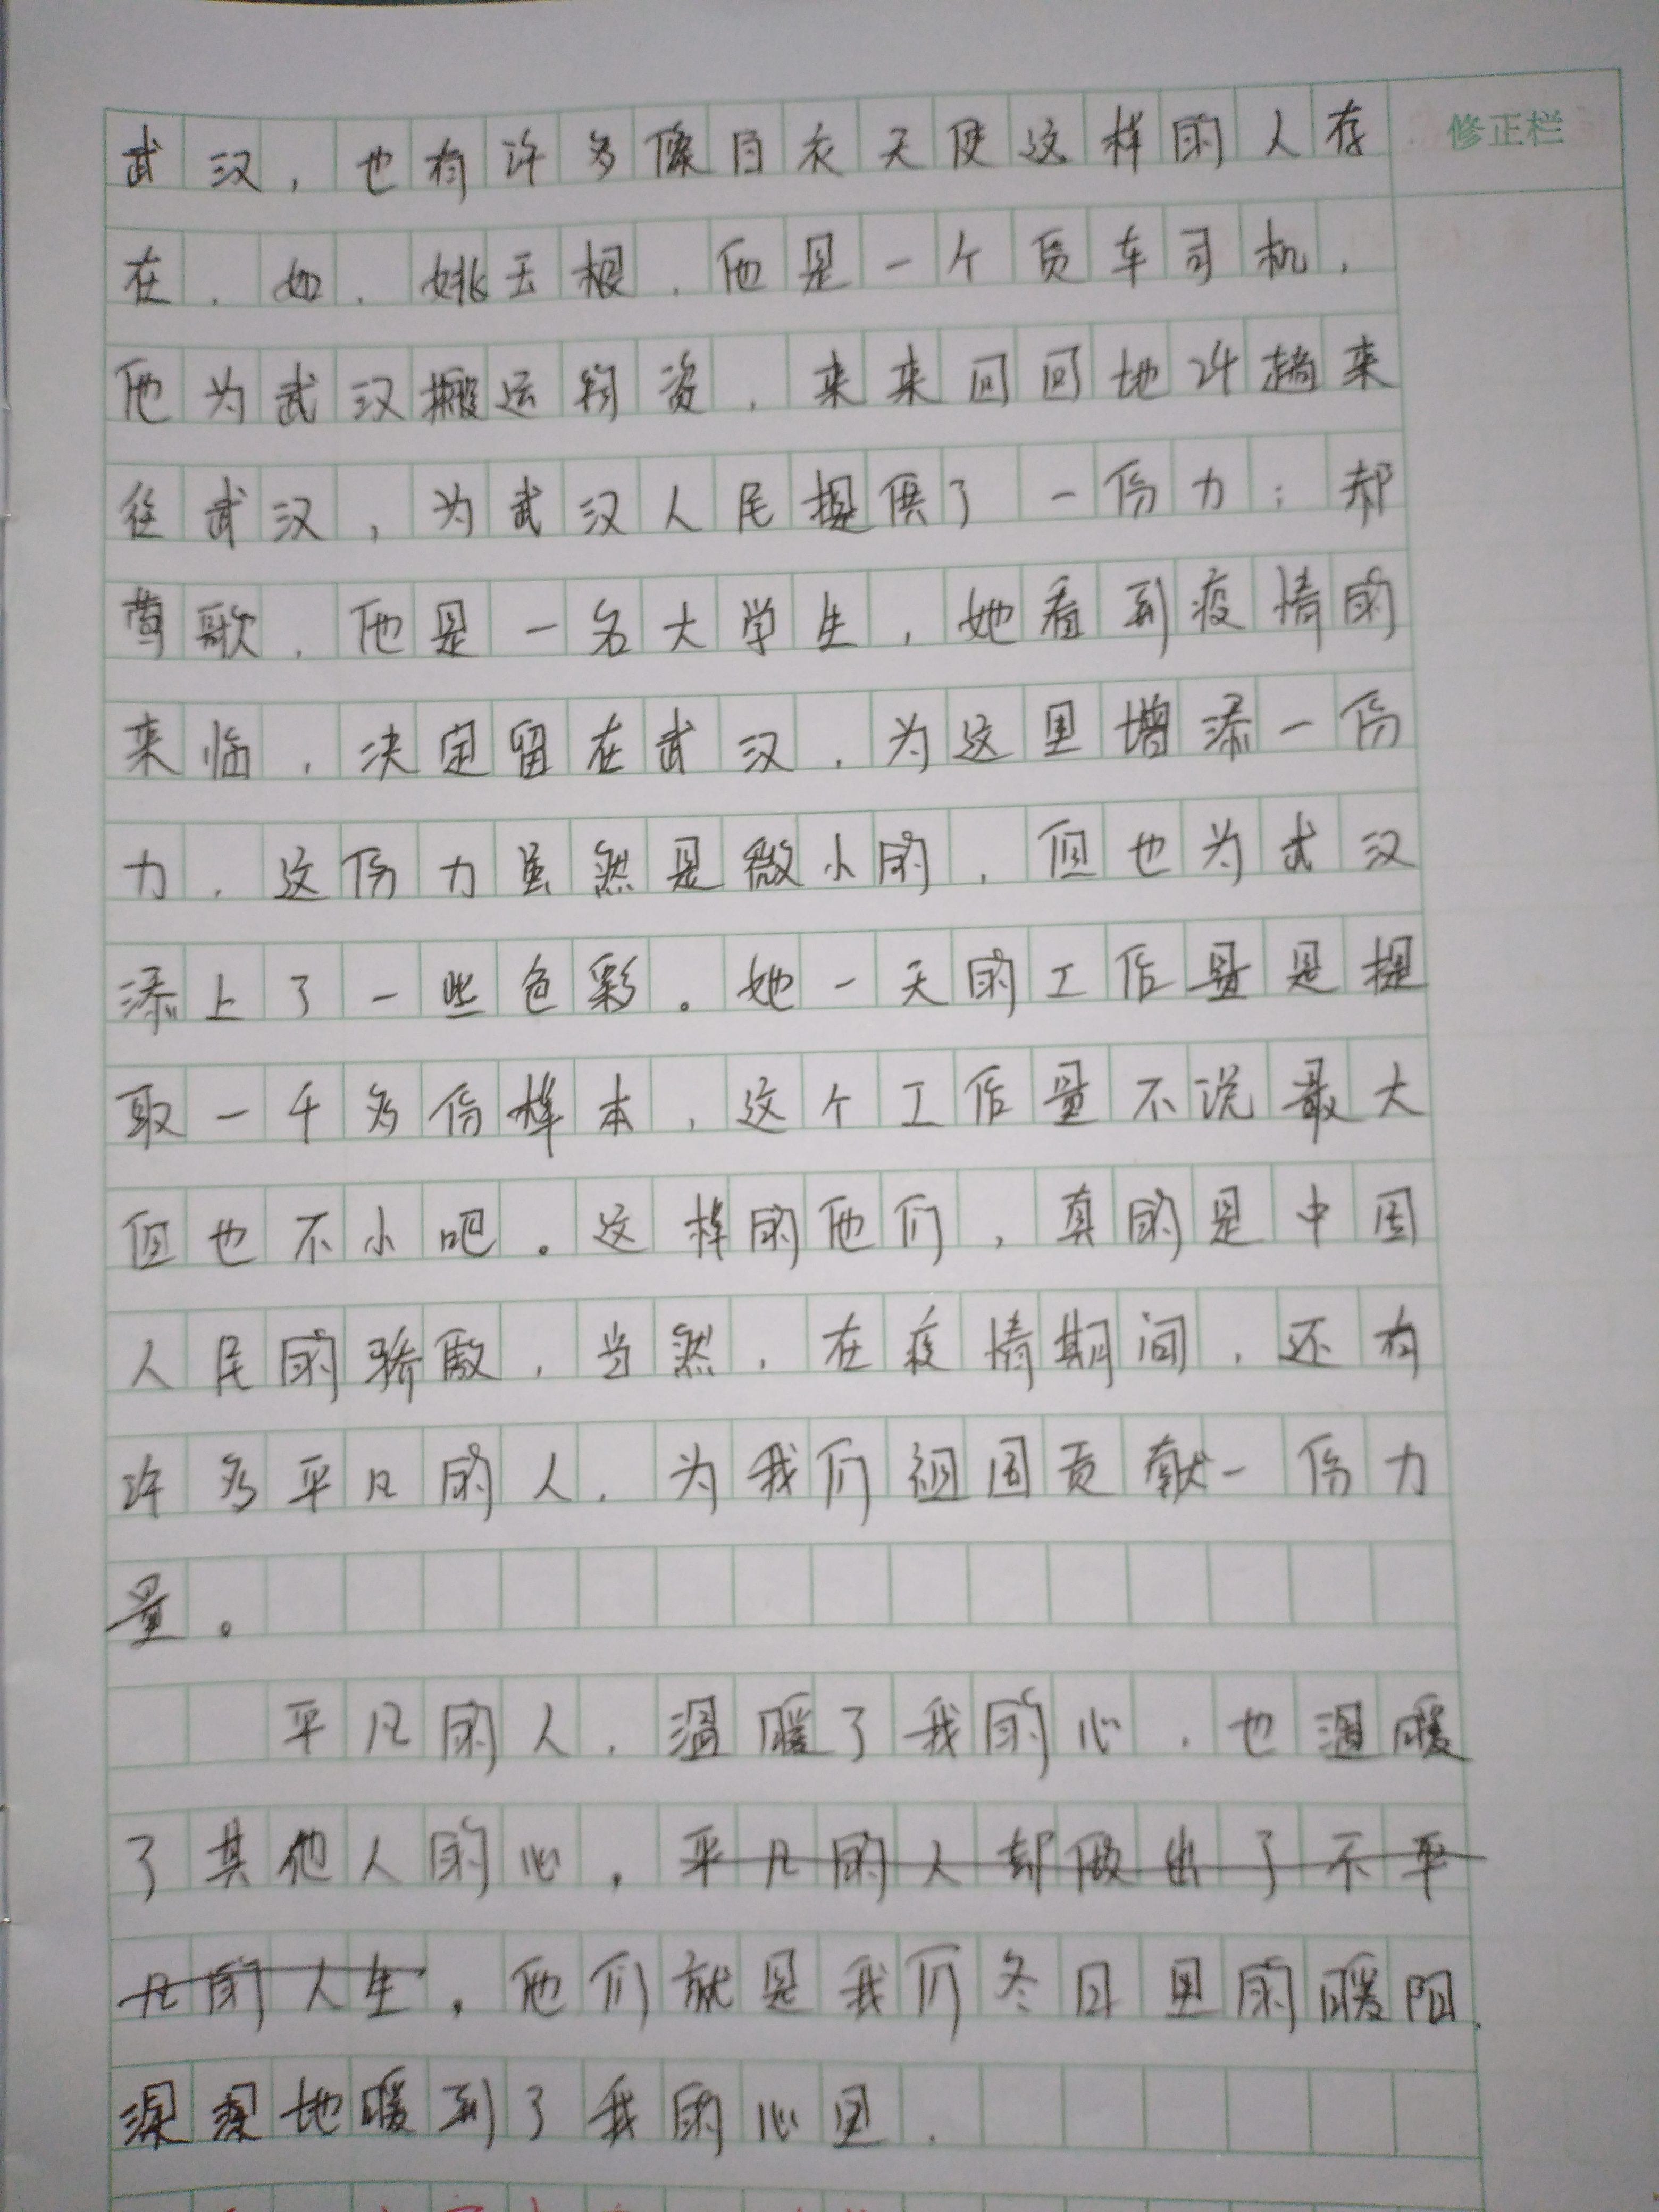 武汉，也有许多像白衣天使这样的人存
修正栏
在，如，姚玉根，他是一个货车司机，
他为武汉搬运物资，来来回回地24趟来
往武汉，为武汉人民提供了一份力；郝
莺歌，他是一名大学生，她看到疫情的
来临，决定留在武汉，为这里增添一份
力，这份力虽然是微小的，但也为武汉
添上了一些色彩。她一天的工作量是提
取一千多份样本，这个工作量不说最大
但也不小吧。这样的他们，真的是中国
人民的骄傲，当然，在疫情期间，还有
许多平凡的人，为我们祖国贡献一份力
量。
平凡的人，温暖了我的心，也温暖
了其他人的心，平凡的人却做出了不平
凡的人生，他们就是我们冬日里的暖阳，
深深地暖到了我的心里，